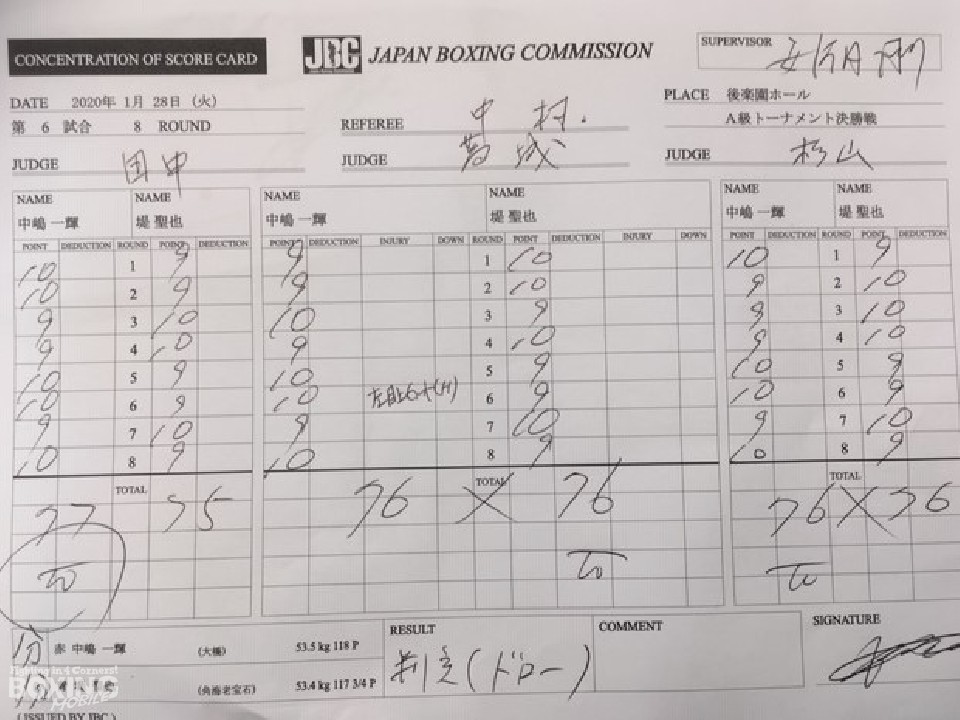 CONCENTRATION OF SCORE CARD
JBC JAPAN BOXING COMMISSION
SUPERVISOR 安河内 剛
DATE 2020年 1月 28日 (火)
PLACE 後楽園ホール
第 6 試合 8 ROUND
REFEREE 中村.
A級トーナメント決勝戦
JUDGE 田中
JUDGE 葛城
JUDGE 杉山
NAME NAME NAME NAME NAME NAME
中嶋 一輝 堤 聖也 中嶋 一輝 堤 聖也 中嶋 一輝 堤 聖也
POINT DEDUCTION ROUND POINT DEDUCTION POINT DEDUCTION INJURY DOWN ROUND POINT DEDUCTION INJURY DOWN POINT DEDUCTION ROUND POINT DEDUCTION
10 1 9 9 1 10 10 1 9
10 2 9 9 2 10 9 2 10
9 3 10 10 3 9 9 3 10
9 4 10 9 4 10 9 4 10
10 5 9 10 5 9 10 5 9
10 6 9 10 6 9 10 6 9
9 7 10 9 7 10 9 7 10
10 8 9 10 8 9 10 8 9
TOTAL TOTAL TOTAL
77 75 76 X 76 76 X 76
RESULT
COMMENT
SIGNATURE
赤 中嶋 一輝 (大橋) 53.5 kg 118 P
判定(ドロー)
(角海老宝石) 53.4 kg 117 3/4 P
Fighting in 4 Corners!
BOXING
MOBILE
(ISSUED BY JBC.)